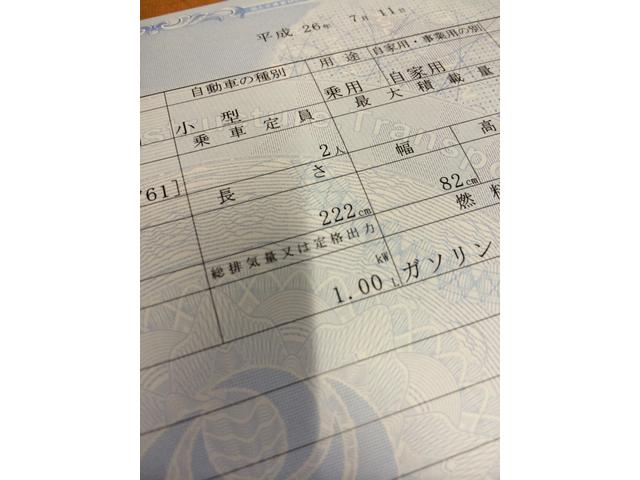 平成 26年 7月 11日
自動車の種別 用途 自家用・事業用の別
小型 乗用 自家用
乗車定員 最大積載量
2人
761] 長さ 幅 高
222cm 82cm
総排気量又は定格出力 燃料
kW
1.00 L ガソリン